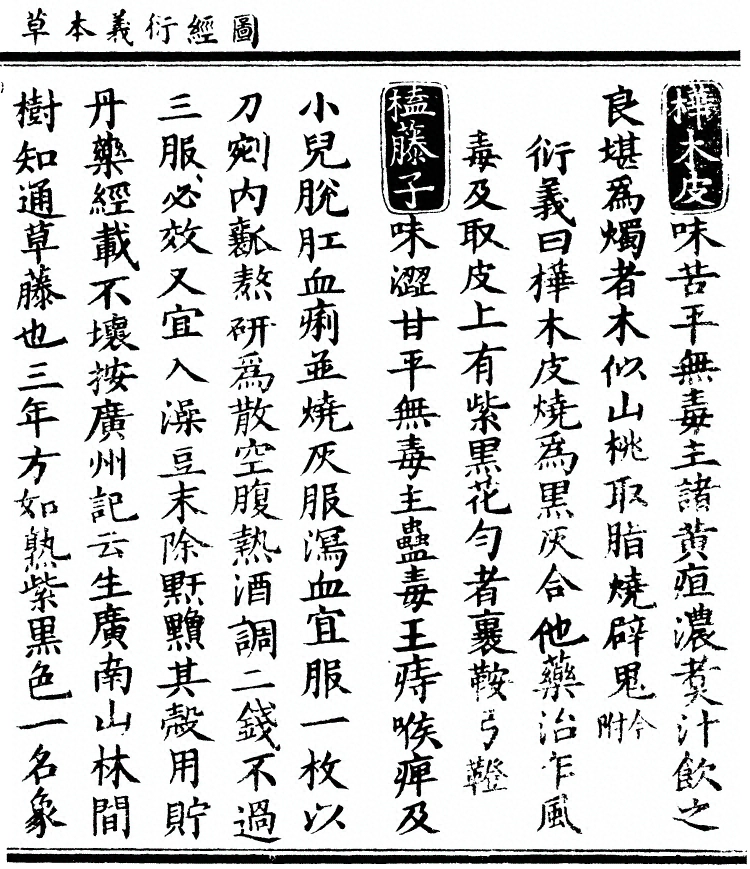 圖經衍義本草
樺木皮味苦平無毒主諸黄疸濃煑汁飲之
良堪爲燭者木似山桃取脂燒辟鬼今附
衍義曰樺木皮燒爲黒灰合他藥治乍風
毒及取皮上有紫黒花勻者裹鞍弓鞾
榼藤子味澀甘平無毒主蠱毒王痔喉痺及
小兒脫肛血痢並燒灰服瀉血宜服一枚以
刀剜内瓤熬研爲散空腹熱酒調二錢不過
三服必效又宜入澡豆末除䵟黯其殻用貯
丹藥經載不壞按廣州記云生廣南山林間
樹知通草藤也三年方如熟紫黒色一名象